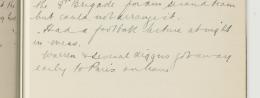 the 9th Brigade for an second team
but could not arrange it.
. Had a football lecture at night
in mess.
Warren & several diggers got away
early to Paris on leave